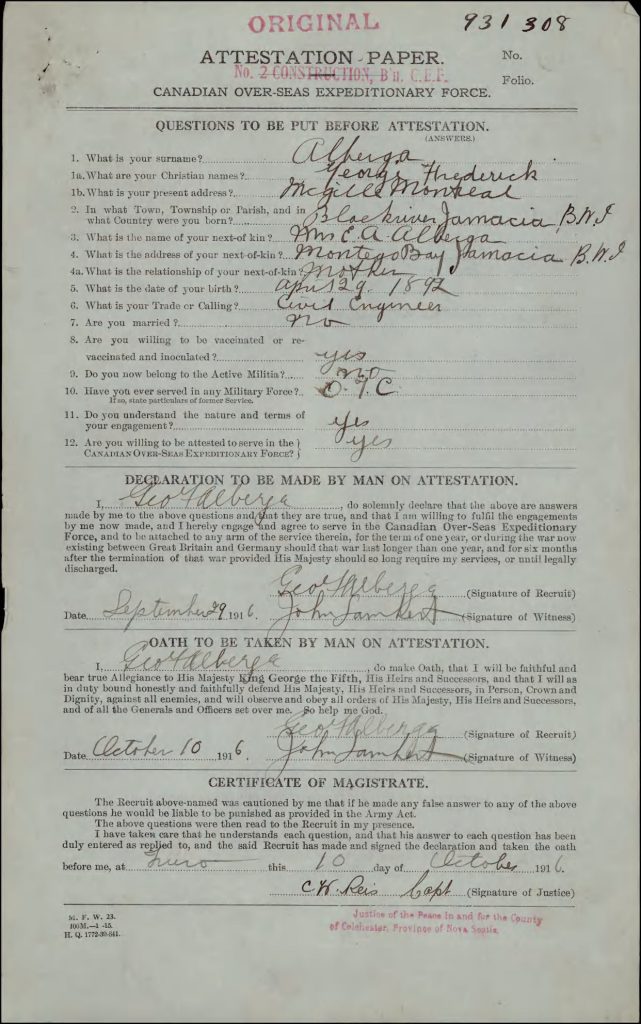 ORIGINAL
931308
ATTESTATION PAPER.
No.
No. 2 CONSTRUCTION, B'n. C.E.F.
Folio.
CANADIAN OVER-SEAS EXPEDITIONARY FORCE.
QUESTIONS TO BE PUT BEFORE ATTESTATION.
(ANSWERS.)
1. What is your surname? Alberga
1a. What are your Christian names? George Frederick
1b. What is your present address? McGill Montreal
2. In what Town, Township or Parish, and in
what Country were you born? Blackriver Jamacia B.W.I
3. What is the name of your next-of kin? Mrs E. A. Alberga
4. What is the address of your next-of-kin? Montego Bay Jamacia B.W.I
4a. What is the relationship of your next-of-kin? Mother
5. What is the date of your birth? April 29. 1892
6. What is your Trade or Calling? Civil Engineer
7. Are you married? no
8. Are you willing to be vaccinated or re-
vaccinated and inoculated? yes
9. Do you now belong to the Active Militia? no
10. Have you ever served in any Military Force? O.T.C.
If so, state particulars of former Service.
11. Do you understand the nature and terms of
your engagement? yes
12. Are you willing to be attested to serve in the }
CANADIAN OVER-SEAS EXPEDITIONARY FORCE? } yes
DECLARATION TO BE MADE BY MAN ON ATTESTATION.
I, Geo F Alberga, do solemnly declare that the above are answers
made by me to the above questions and that they are true, and that I am willing to fulfil the engagements
by me now made, and I hereby engage and agree to serve in the Canadian Over-Seas Expeditionary
Force, and to be attached to any arm of the service therein, for the term of one year, or during the war now
existing between Great Britain and Germany should that war last longer than one year, and for six months
after the termination of that war provided His Majesty should so long require my services, or until legally
discharged.
Geo F Alberga (Signature of Recruit)
Date September 29 1916 John Lambert (Signature of Witness)
OATH TO BE TAKEN BY MAN ON ATTESTATION.
I, Geo F Alberga, do make Oath, that I will be faithful and
bear true Allegiance to His Majesty King George the Fifth, His Heirs and Successors, and that I will as
in duty bound honestly and faithfully defend His Majesty, His Heirs and Successors, in Person, Crown and
Dignity, against all enemies, and will observe and obey all orders of His Majesty, His Heirs and Successors,
and of all the Generals and Officers set over me. So help me God.
Geo F Alberga (Signature of Recruit)
Date October 10 1916 John Lambert (Signature of Witness)
CERTIFICATE OF MAGISTRATE.
The Recruit above-named was cautioned by me that if he made any false answer to any of the above
questions he would be liable to be punished as provided in the Army Act.
The above questions were then read to the Recruit in my presence.
I have taken care that he understands each question, and that his answer to each question has been
duly entered as replied to, and the said Recruit has made and signed the declaration and taken the oath
before me, at Truro this 10 day of October 1916.
C W Reis Capt (Signature of Justice)
M. F. W. 23.
100M.—1-15.
H. Q. 1772-39-841.
Justice of the Peace in and for the County
of Colchester, Province of Nova Scotia